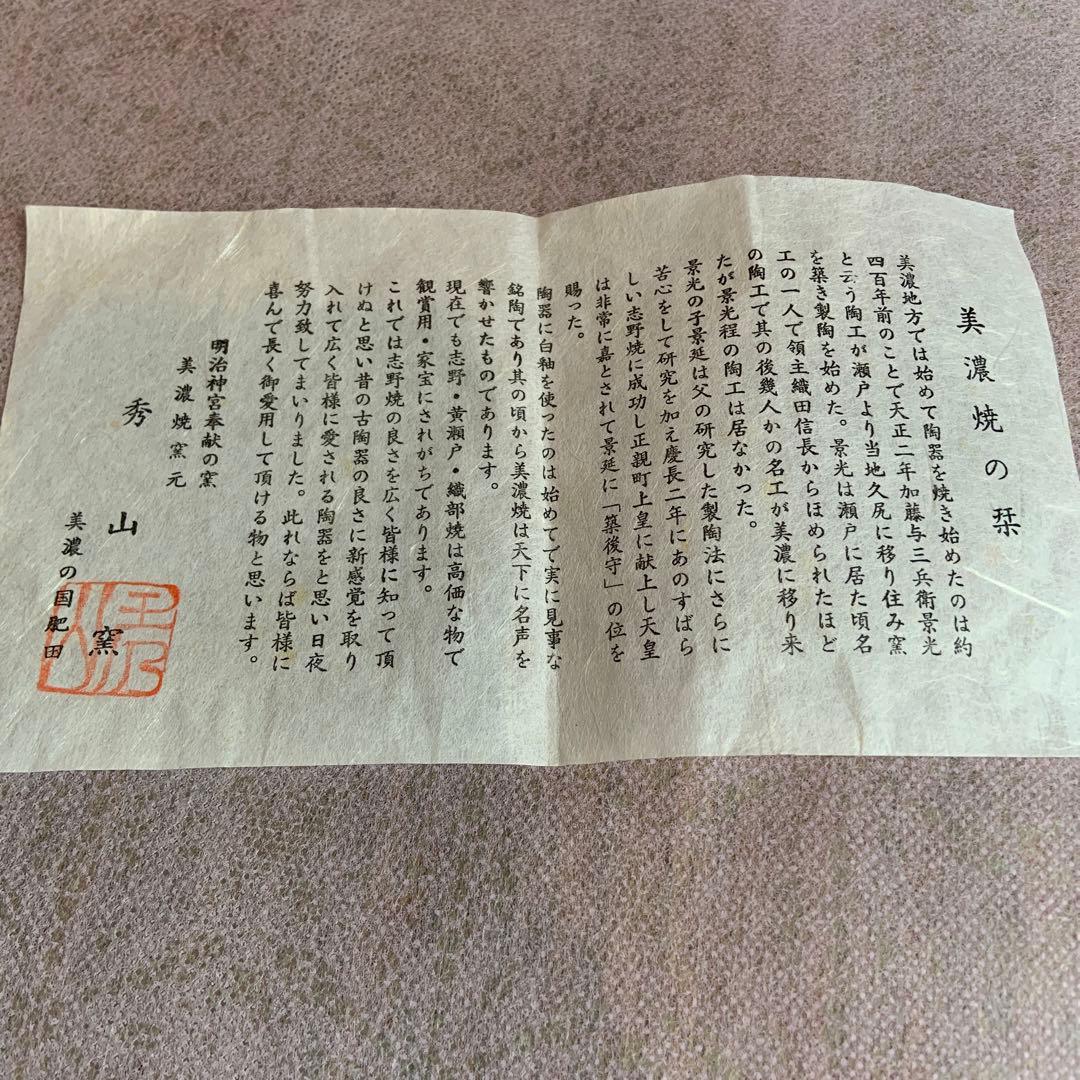 美濃焼の栞
美濃地方では始めて陶器を焼き始めたのは約
四百年前のことで天正二年加藤与三兵衛景光
と云う陶工が瀬戸より当地久尻に移り住み窯
を築き製陶を始めた。景光は瀬戸に居た頃名
工の一人で領主織田信長からほめられたほど
の陶工で其の後幾人かの名工が美濃に移り来
たが景光程の陶工は居なかった。
景光の子景延は父の研究した製陶法にさらに
苦心をして研究を加え慶長二年にあのすばら
しい志野焼に成功し正親町上皇に献上し天皇
は非常に嘉とされて景延に「築後守」の位を
賜った。
陶器に白釉を使ったのは始めてで実に見事な
銘陶であり其の頃から美濃焼は天下に名声を
響かせたものであります。
現在でも志野・黄瀬戸・織部焼は高価な物で
観賞用・家宝にされがちであります。
これでは志野焼の良さを広く皆様に知って頂
けぬと思い昔の古陶器の良さに新感覚を取り
入れて広く皆様に愛される陶器をと思い日夜
努力致してまいりました。此れならば皆様に
喜んで長く御愛用して頂ける物と思います。
明治神宮奉献の窯
美濃焼窯元
秀山窯
美濃の国肥田